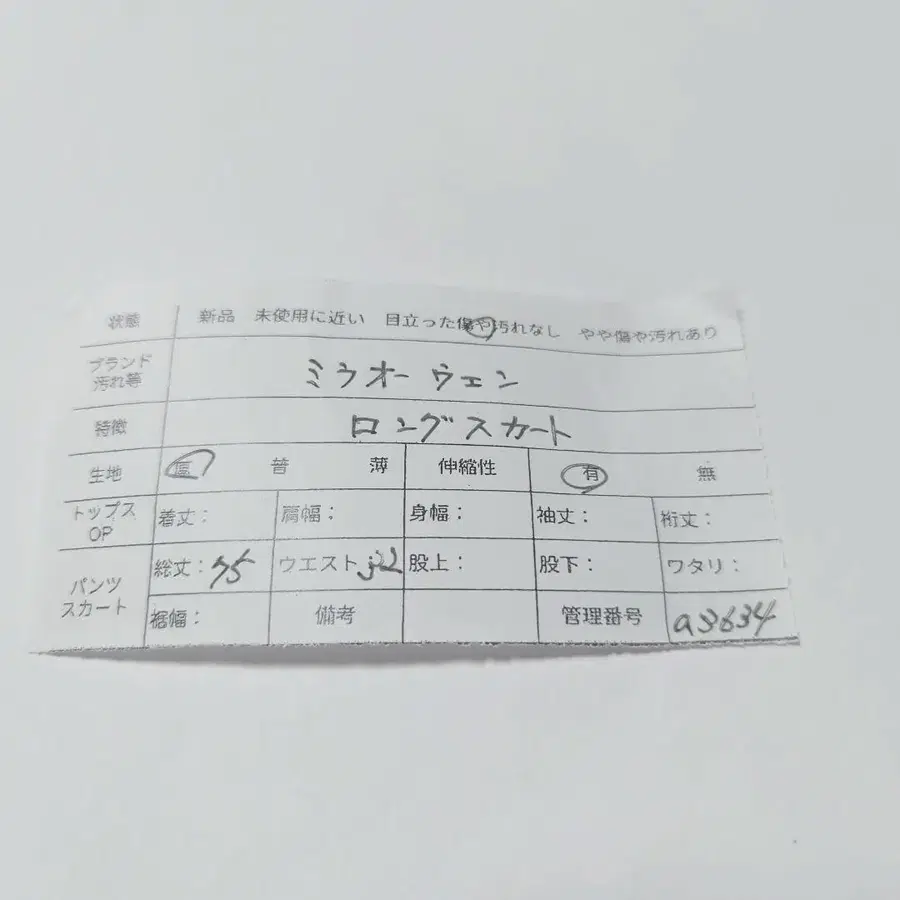 状態 新品 未使用に近い 目立った傷や汚れなし やや傷や汚れあり
ブランド
汚れ等 ミラオーウェン
特徴 ロングスカート
生地 厚 普 薄 伸縮性 有 無
トップス
OP 着丈: 肩幅: 身幅: 袖丈: 裄丈:
パンツ
スカート 総丈:75 ウエスト: 32 股上: 股下: ワタリ:
裾幅: 備考 管理番号 a3634